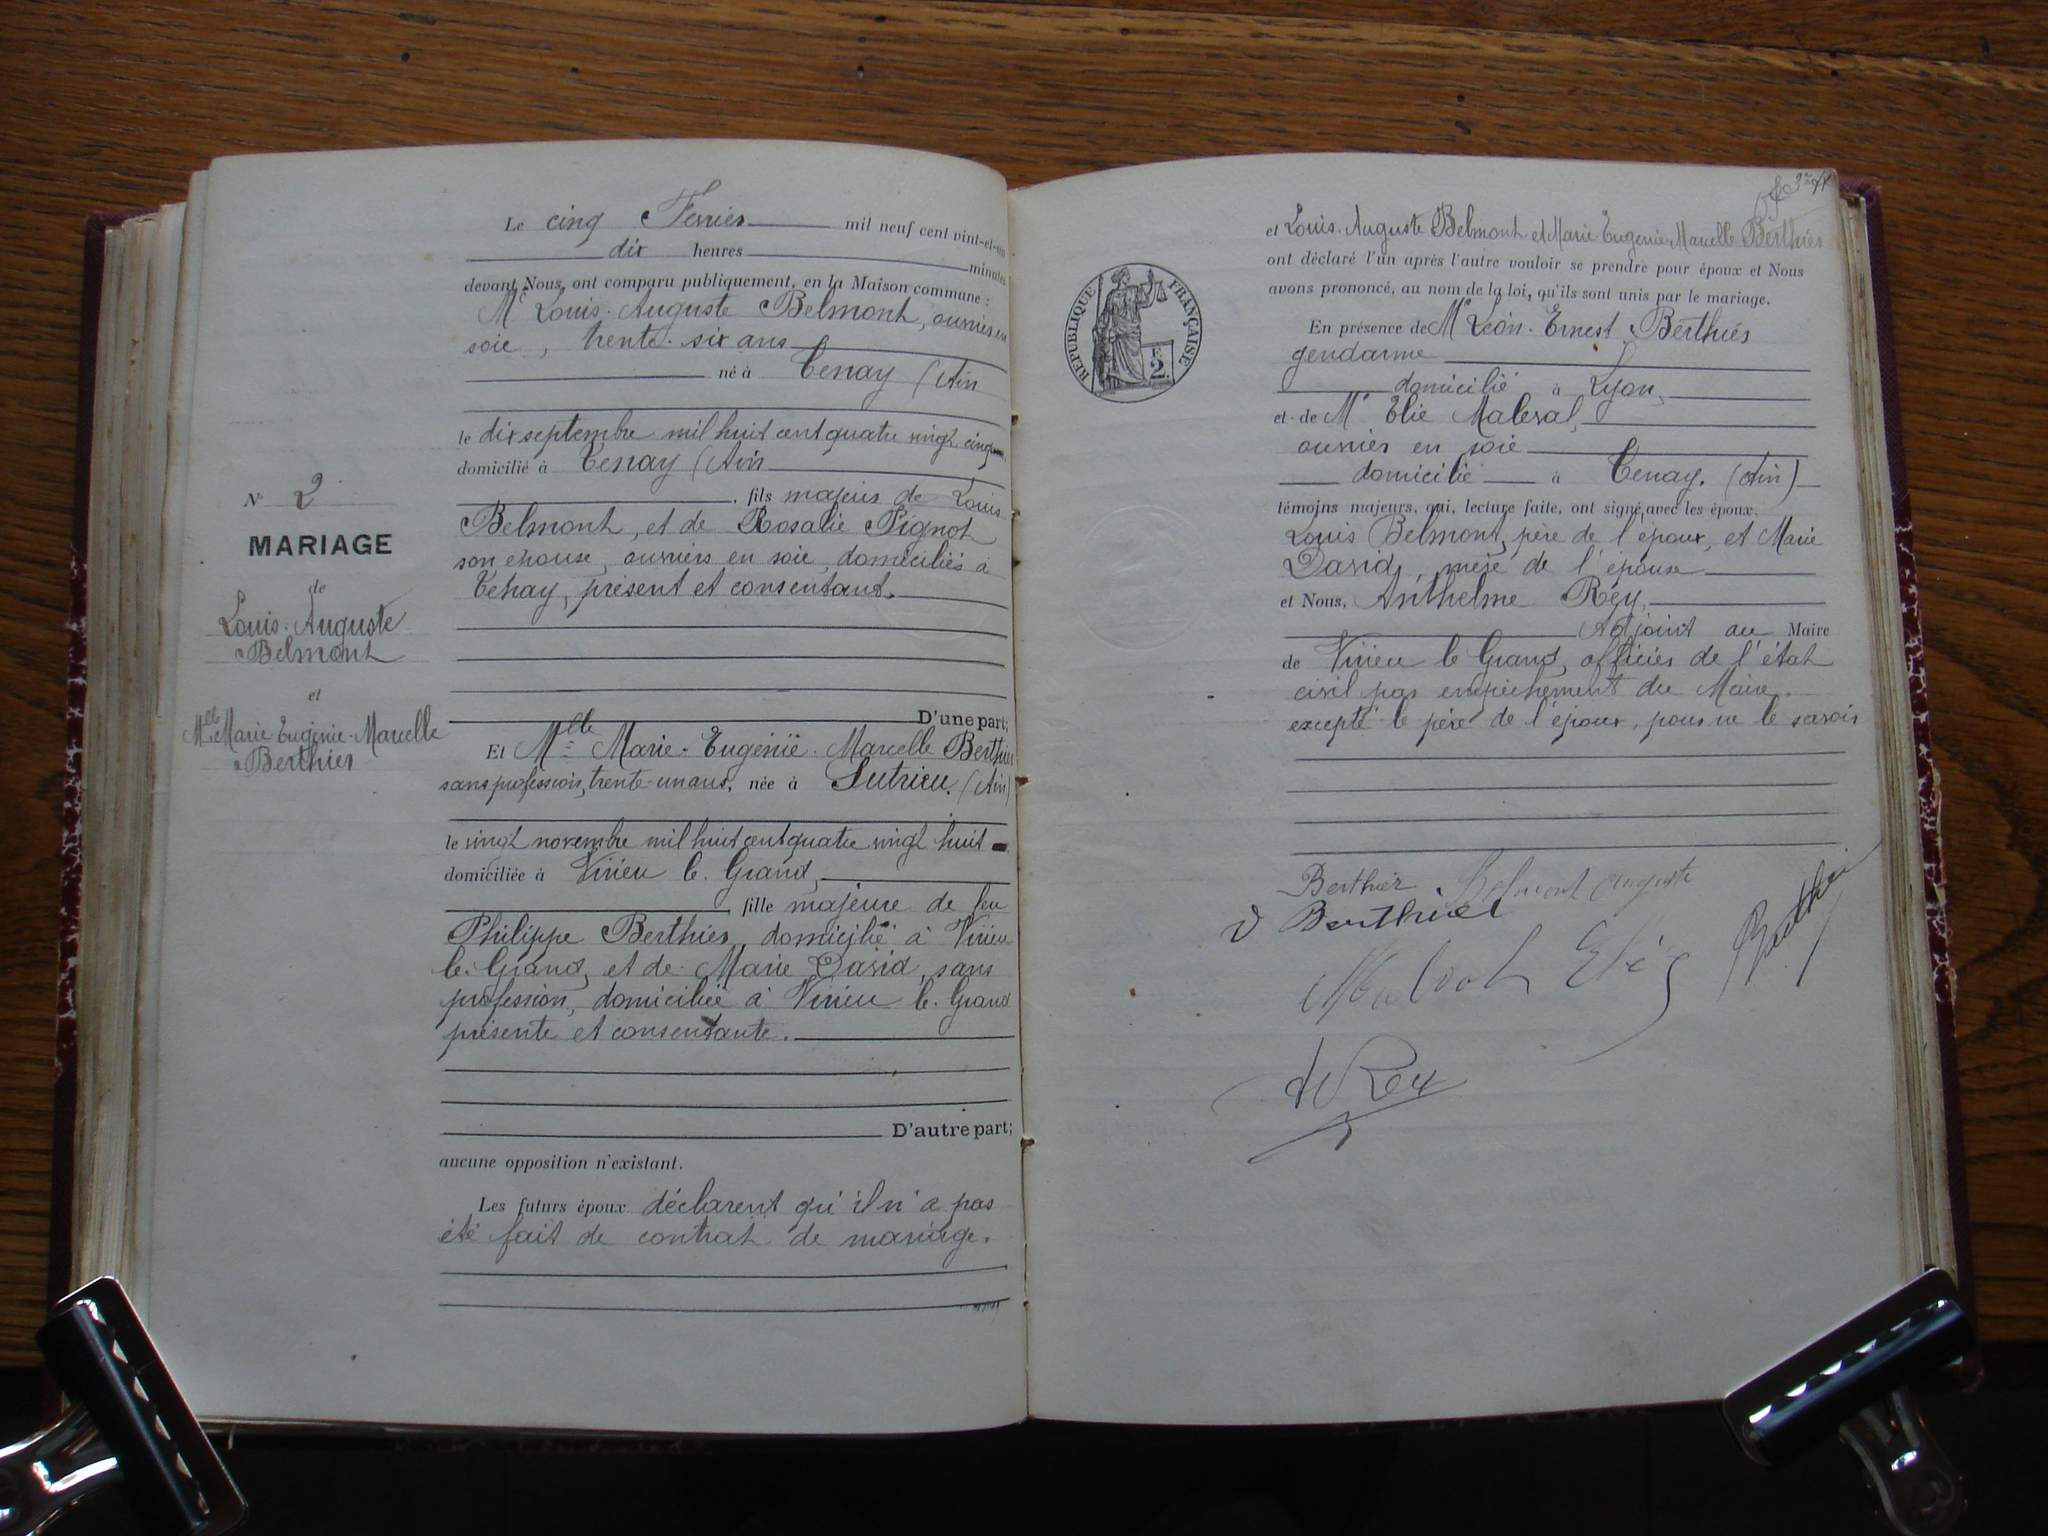 Le cinq Fevrier mil neuf cent vint-et-un
dix heures minutes
devant Nous, ont comparu publiquement, en la Maison commune :
Mr Louis-Auguste Belmont, ouvrier en
soie, trente-six ans
né à Tenay (Ain
le dix septembre mil huit cent quatre vingt cinq
domicilié à Tenay (Ain
, fils majeur de Louis
Belmont, et de Rosalie Pignot
son épouse, ouvriers en soie, domiciliés à
Tenay, présent et consentant.
D'une part;
Et Mlle Marie-Eugénie-Marcelle Berthier
sans profession, trente-un ans, née à Sutrieu. (Ain)
le vingt novembre mil huit cent quatre vingt huit
domiciliée à Virieu le Grand,
, fille majeure de feu
Philippe Berthier, domicilié à Virieu
le-Grand, et de Marie David, sans
profession, domiciliée à Virieu le-Grand
présente et consentante.
D'autre part;
aucune opposition n'existant.
Les futurs époux déclarent qu'il n'a pas
été fait de contrat de mariage.
No 2
MARIAGE
de
Louis-Auguste
Belmont
et
Mlle Marie-Eugénie-Marcelle
Berthier
et Louis-Auguste Belmont et Marie Eugénie Marcelle Berthier
ont déclaré l'un après l'autre vouloir se prendre pour époux et Nous
avons prononcé, au nom de la loi, qu'ils sont unis par le mariage.
En présence de Mr Léon-Ernest Berthier
gendarme
domicilié à Lyon,
et de Mr Elie Maleval,
ouvrier en soie
domicilié à Tenay. (Ain)
témoins majeurs, qui, lecture faite, ont signé avec les époux.
Louis Belmont, père de l'époux, et Marie
David, mère de l'épouse
et Nous, Anthelme Rey,
Adjoint au Maire
de Virieu le Grand, officier de l'état
civil par empêchement du Maire.
excepté le père de l'époux, pour ne le savoir
RÉPUBLIQUE FRANÇAISE
2
Berthier Belmont Auguste
D Berthier
Elie Berthier
Rey